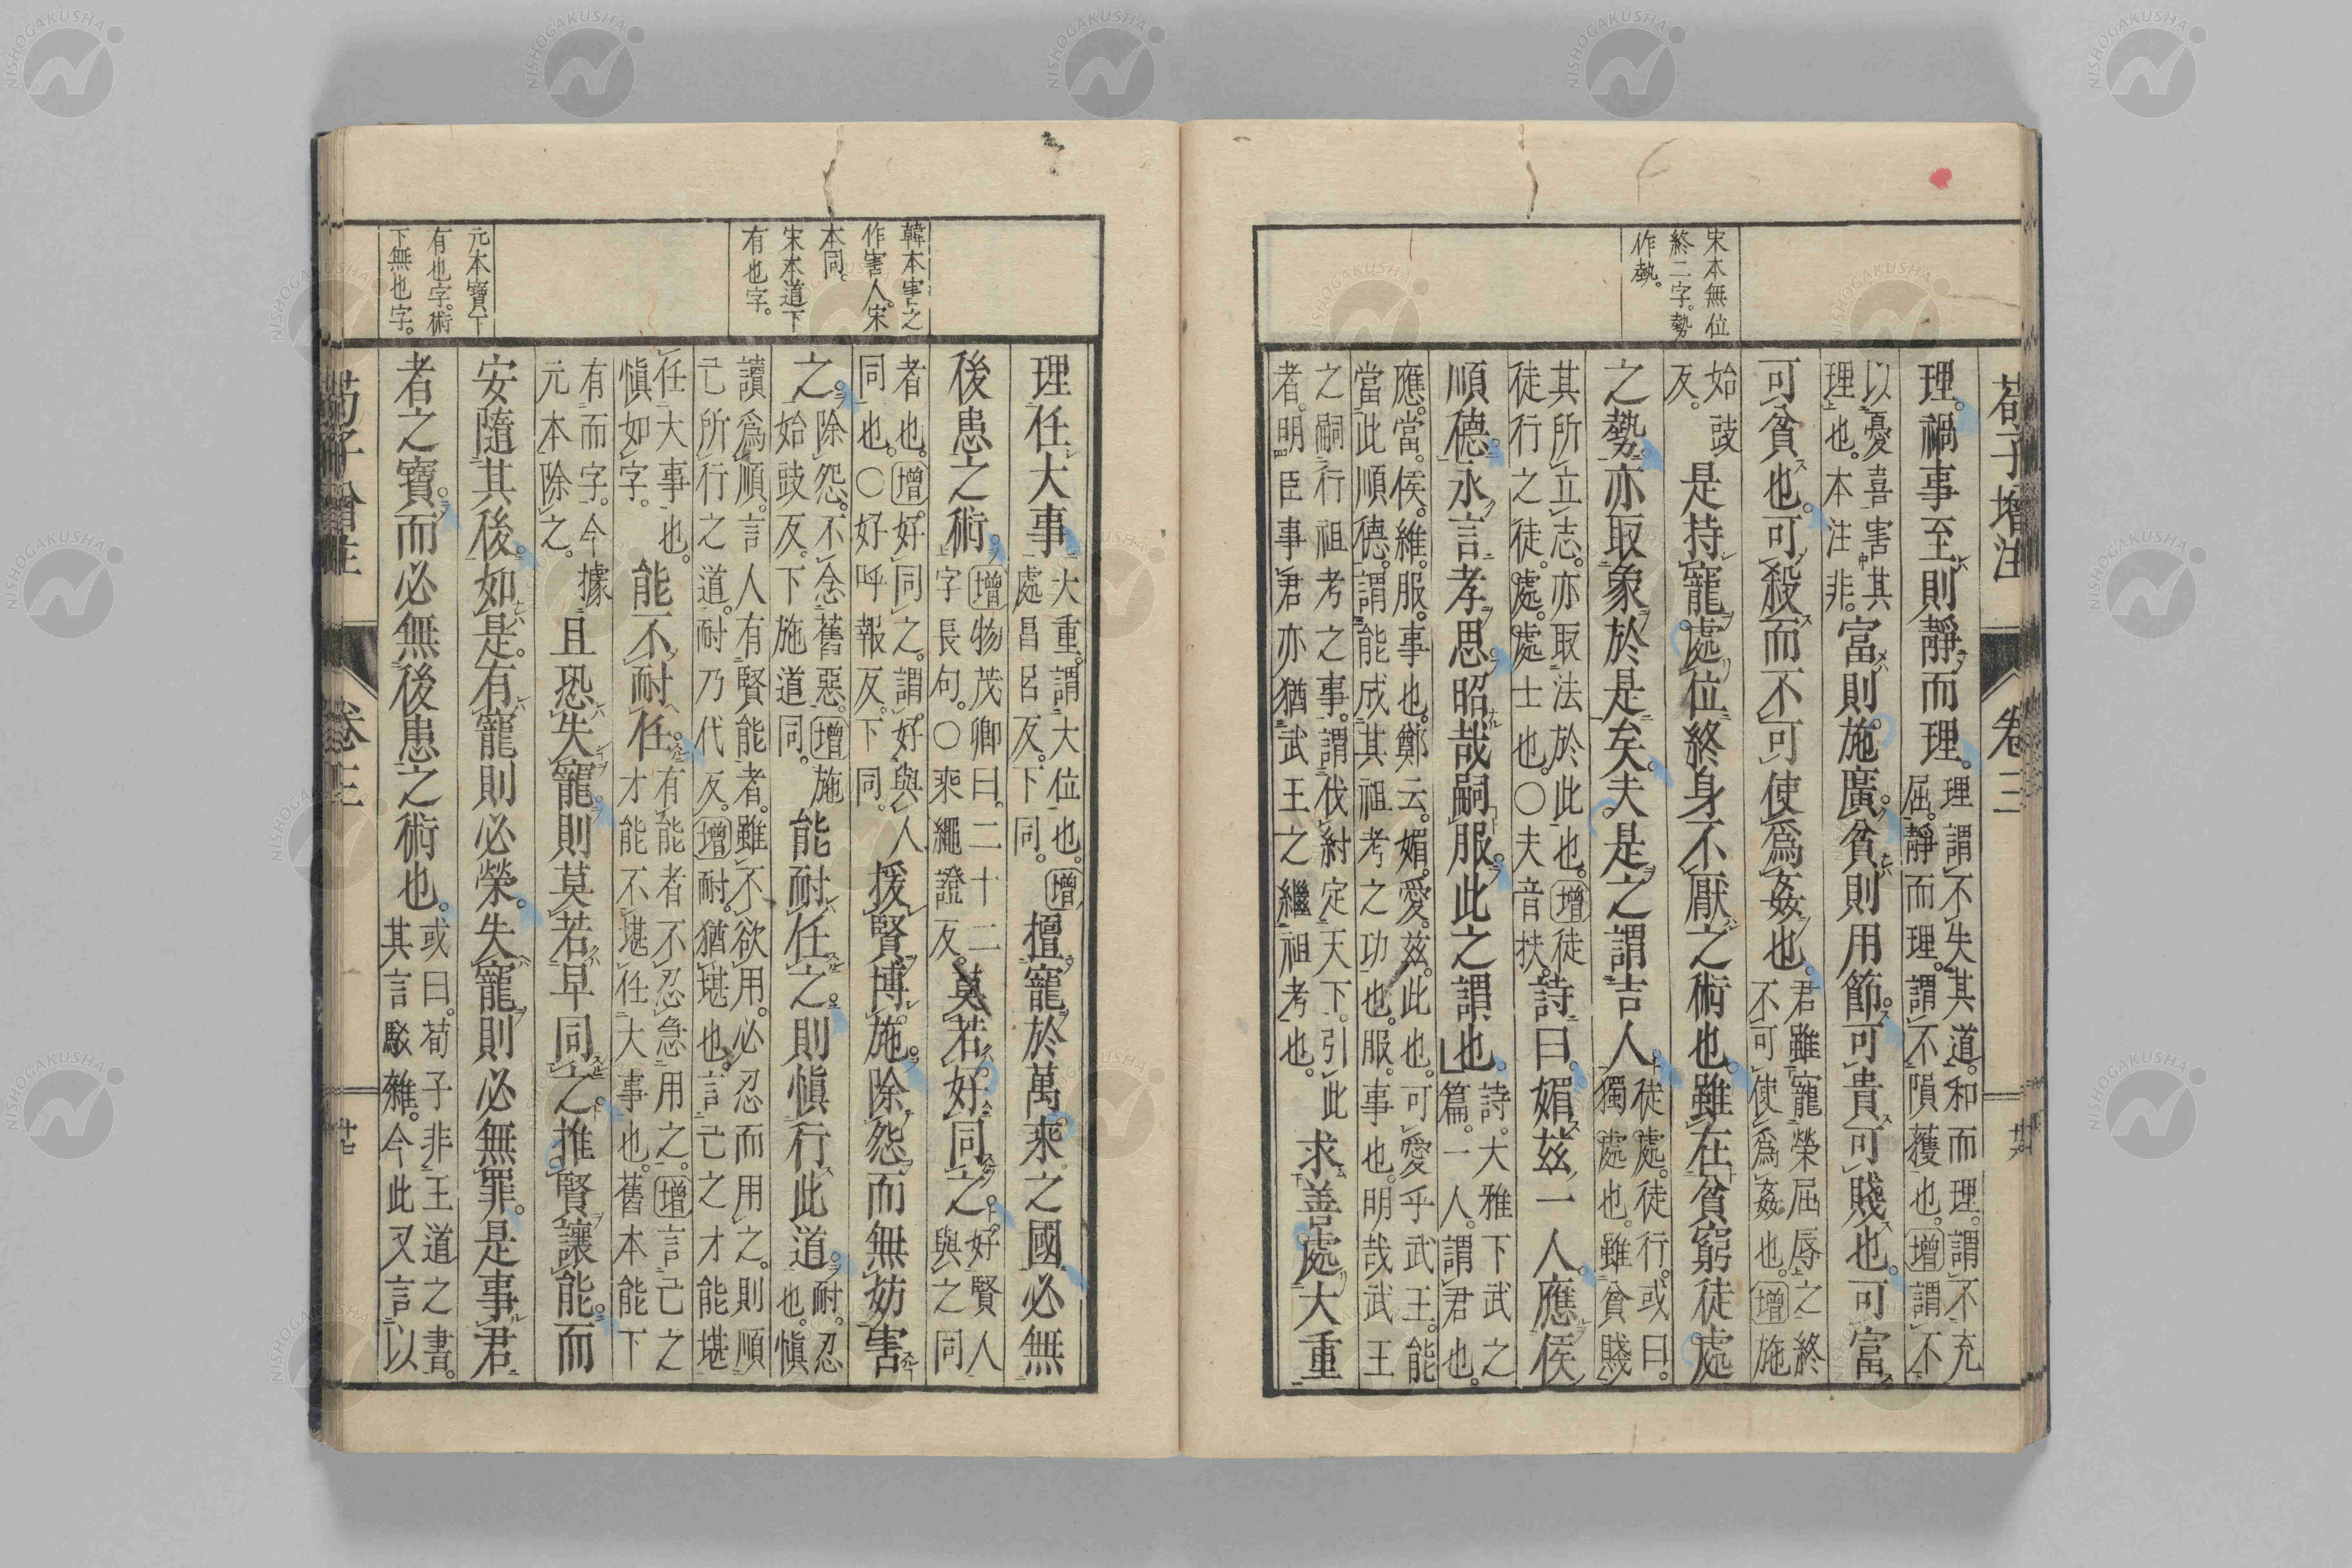 荀子增注
卷三
廿六
宋本無位
終二字。勢
作埶。
理。禍事至則靜而理。
理謂不失其道。和而理。謂不充
屈。靜而理。謂不隕穫也。增謂不
以憂喜害其
理也。本注非。
富則施廣。貧則用節。可貴可賤也。可富
可貧也。可殺而不可使爲姦也。
君雖寵榮屈辱之終
不可使爲姦也。增施
始豉
反。
是持寵處位終身不厭之術也。雖在貧窮徒處
之勢。亦取象於是矣。夫是之謂吉人。
徒處。徒行。或曰。
獨處也。雖貧賤
其所立志。亦取法於此也。增徒
徒行之徒。處。處士也。○夫音扶。
詩曰。媚茲一人。應侯
順德。永言孝思。昭哉嗣服。此之謂也。
詩。大雅下武之
篇。一人。謂君也。
應。當。侯。維。服。事也。鄭云。媚。愛。茲。此也。可愛乎武王。能
當此順德。謂能成其祖考之功也。服。事也。明哉武王
之嗣行祖考之事。謂伐紂定天下。引此
者。明臣事君亦猶武王之繼祖考也。
求善處大重
韓本害之
作害人。宋
本同。
宋本道下
有也字。
元本寶下
有也字。術
下無也字。
理任大事
大重。謂大位也。增
處昌呂反。下同。
擅寵於萬乘之國。必無
後患之術。
增物茂卿曰。二十二
字長句。○乘繩證反。
莫若好同之。
好賢人
與之同
者也。增好同之。謂好與人
同也。○好呼報反。下同。
援賢博施。除怨而無妨害
之。
除怨。不念舊惡。增施
始豉反。下施道同。
能耐任之。則愼行此道。
耐。忍
也。愼
讀爲順。言人有賢能者。雖不欲用。必忍而用之。則順
己所行之道。耐乃代反。增耐。猶堪也。言己之才能堪
任大事也。
愼如字。
能不耐任。
有能者不忍急用之。增言己之
才能不堪任大事也。舊本能下
有而字。今據
元本除之。
且恐失寵。則莫若早同之。推賢讓能。而
安隨其後。如是。有寵則必榮。失寵則必無罪。是事君
者之寶。而必無後患之術也。
或曰。荀子非王道之書。
其言駁雜。今此又言以
荀子增注
卷三
廿七